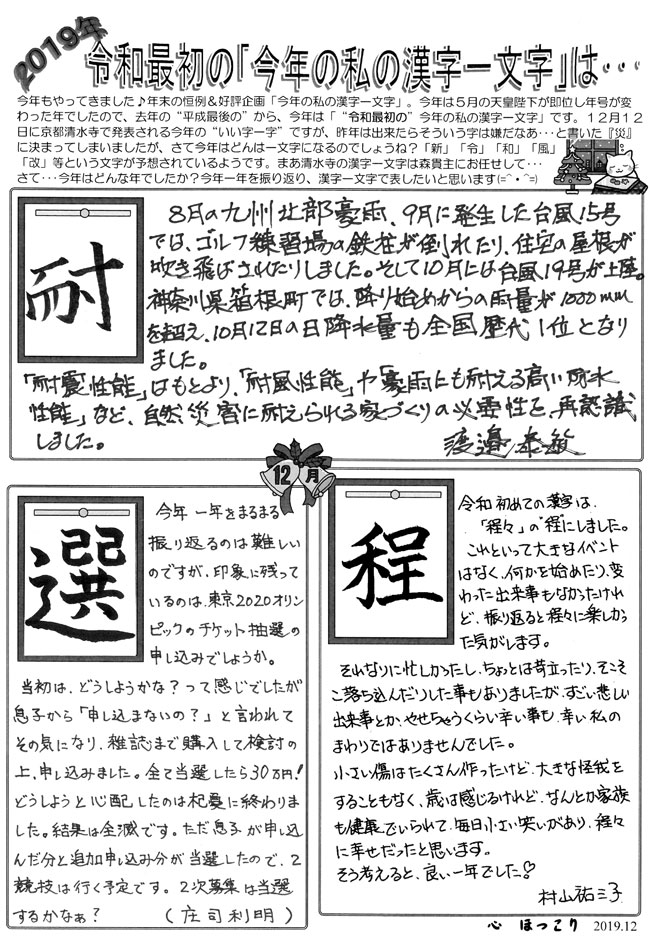 2019年
令和最初の「今年の私の漢字一文字」は・・・
今年もやってきました♪年末の恒例＆好評企画「今年の私の漢字一文字」。今年は５月の天皇陛下が即位し年号が変
わった年でしたので、去年の“平成最後の”から、今年は「“令和最初の”今年の漢字一文字」です。１２月１２
日に京都清水寺で発表される今年の“いい字一字”ですが、昨年は出来たらそういう字は嫌だなあ・・・と書いた『災』
に決まってしまいましたが、さて今年はどんは一文字になるのでしょうね？「新」「令」「和」「風」
「改」等という文字が予想されているようです。まあ清水寺の漢字一文字は森貴主にお任せして・・・
さて・・・今年はどんな年でしたか？今年一年を振り返り、漢字一文字で表したいと思います(=^・^=)
耐
8月の九州北部豪雨、9月に発生した台風15号
では、ゴルフ練習場の鉄柱が倒れたり、住宅の屋根が
吹き飛ばされたりしました。そして10月には台風19号が上陸。
神奈川県箱根町では、降り始めからの雨量が1000mm
を超え、10月12日の日降水量も全国歴代1位となり
ました。
「耐震性能」はもとより、「耐風性能」や「豪雨にも耐える高い防水
性能」など、自然災害に耐えられる家づくりの必要性を、再認識
しました。
渡邉泰敏
12月
選
今年一年をまるまる
振り返るのは難しい
のですが、印象に残って
いるのは、東京2020オリン
ピックのチケット抽選の
申し込みでしょうか。
当初は、どうしようかな？って感じでしたが
息子から「申し込まないの？」と言われて
その気になり、雑誌まで購入して検討の
上、申し込みました。全て当選したら30万円！
どうしようと心配したのは杞憂に終わりま
した。結果は全滅です。ただ息子が申し込
んだ分と追加申し込み分が当選したので、2
競技は行く予定です。2次募集は当選
するかなぁ？（庄司利明）
程
令和初めての漢字は、
「程々」の“程”にしました。
これといって大きなイベント
はなく、何かを始めたり、変
わった出来事もなかったけれ
ど、振り返ると程々に楽しかっ
た気がします。
それなりに忙しかったし、ちょっとは苛立ったり、そこそ
こ落ち込んだりした事もありましたが、すごい悲しい
出来事とか、やせちゃうくらい辛い事も、幸い私の
まわりではありませんでした。
小さい傷はたくさん作ったけど、大きな怪我を
することもなく、歳は感じるけれど、なんとか家族
も健康でいられて、毎日小さい笑いがあり、程々
に幸せだったと思います。
そう考えると、良い一年でした♡
村山祐三子
心 ほっこり 2019.12